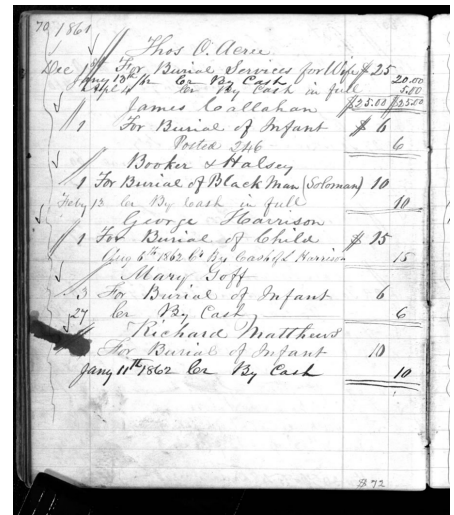 70 1861
Thos O. Acree
Dec 1st For Burial Services for Wife $25
Jany 13th Cr By Cash 20.00
Apl 4 Cr By Cash in full 5.00
James Callahan $25.00 $25.00
" 1 For Burial of Infant $6
Posted 246 6
Booker & Halsey
" 1 For Burial of Black Man (Soloman) 10
Feby 13 Cr By Cash in full 10
George Harrison
" 1 For Burial of Child $15
Aug 6th 1862 Cr By Cash Harrison 15
Mary Goff
" 3 For Burial of Infant 6
" 27 Cr By Cash 6
Richard Matthews
For Burial of Infant 10
Jany 11th 1862 Cr By Cash 10
$72